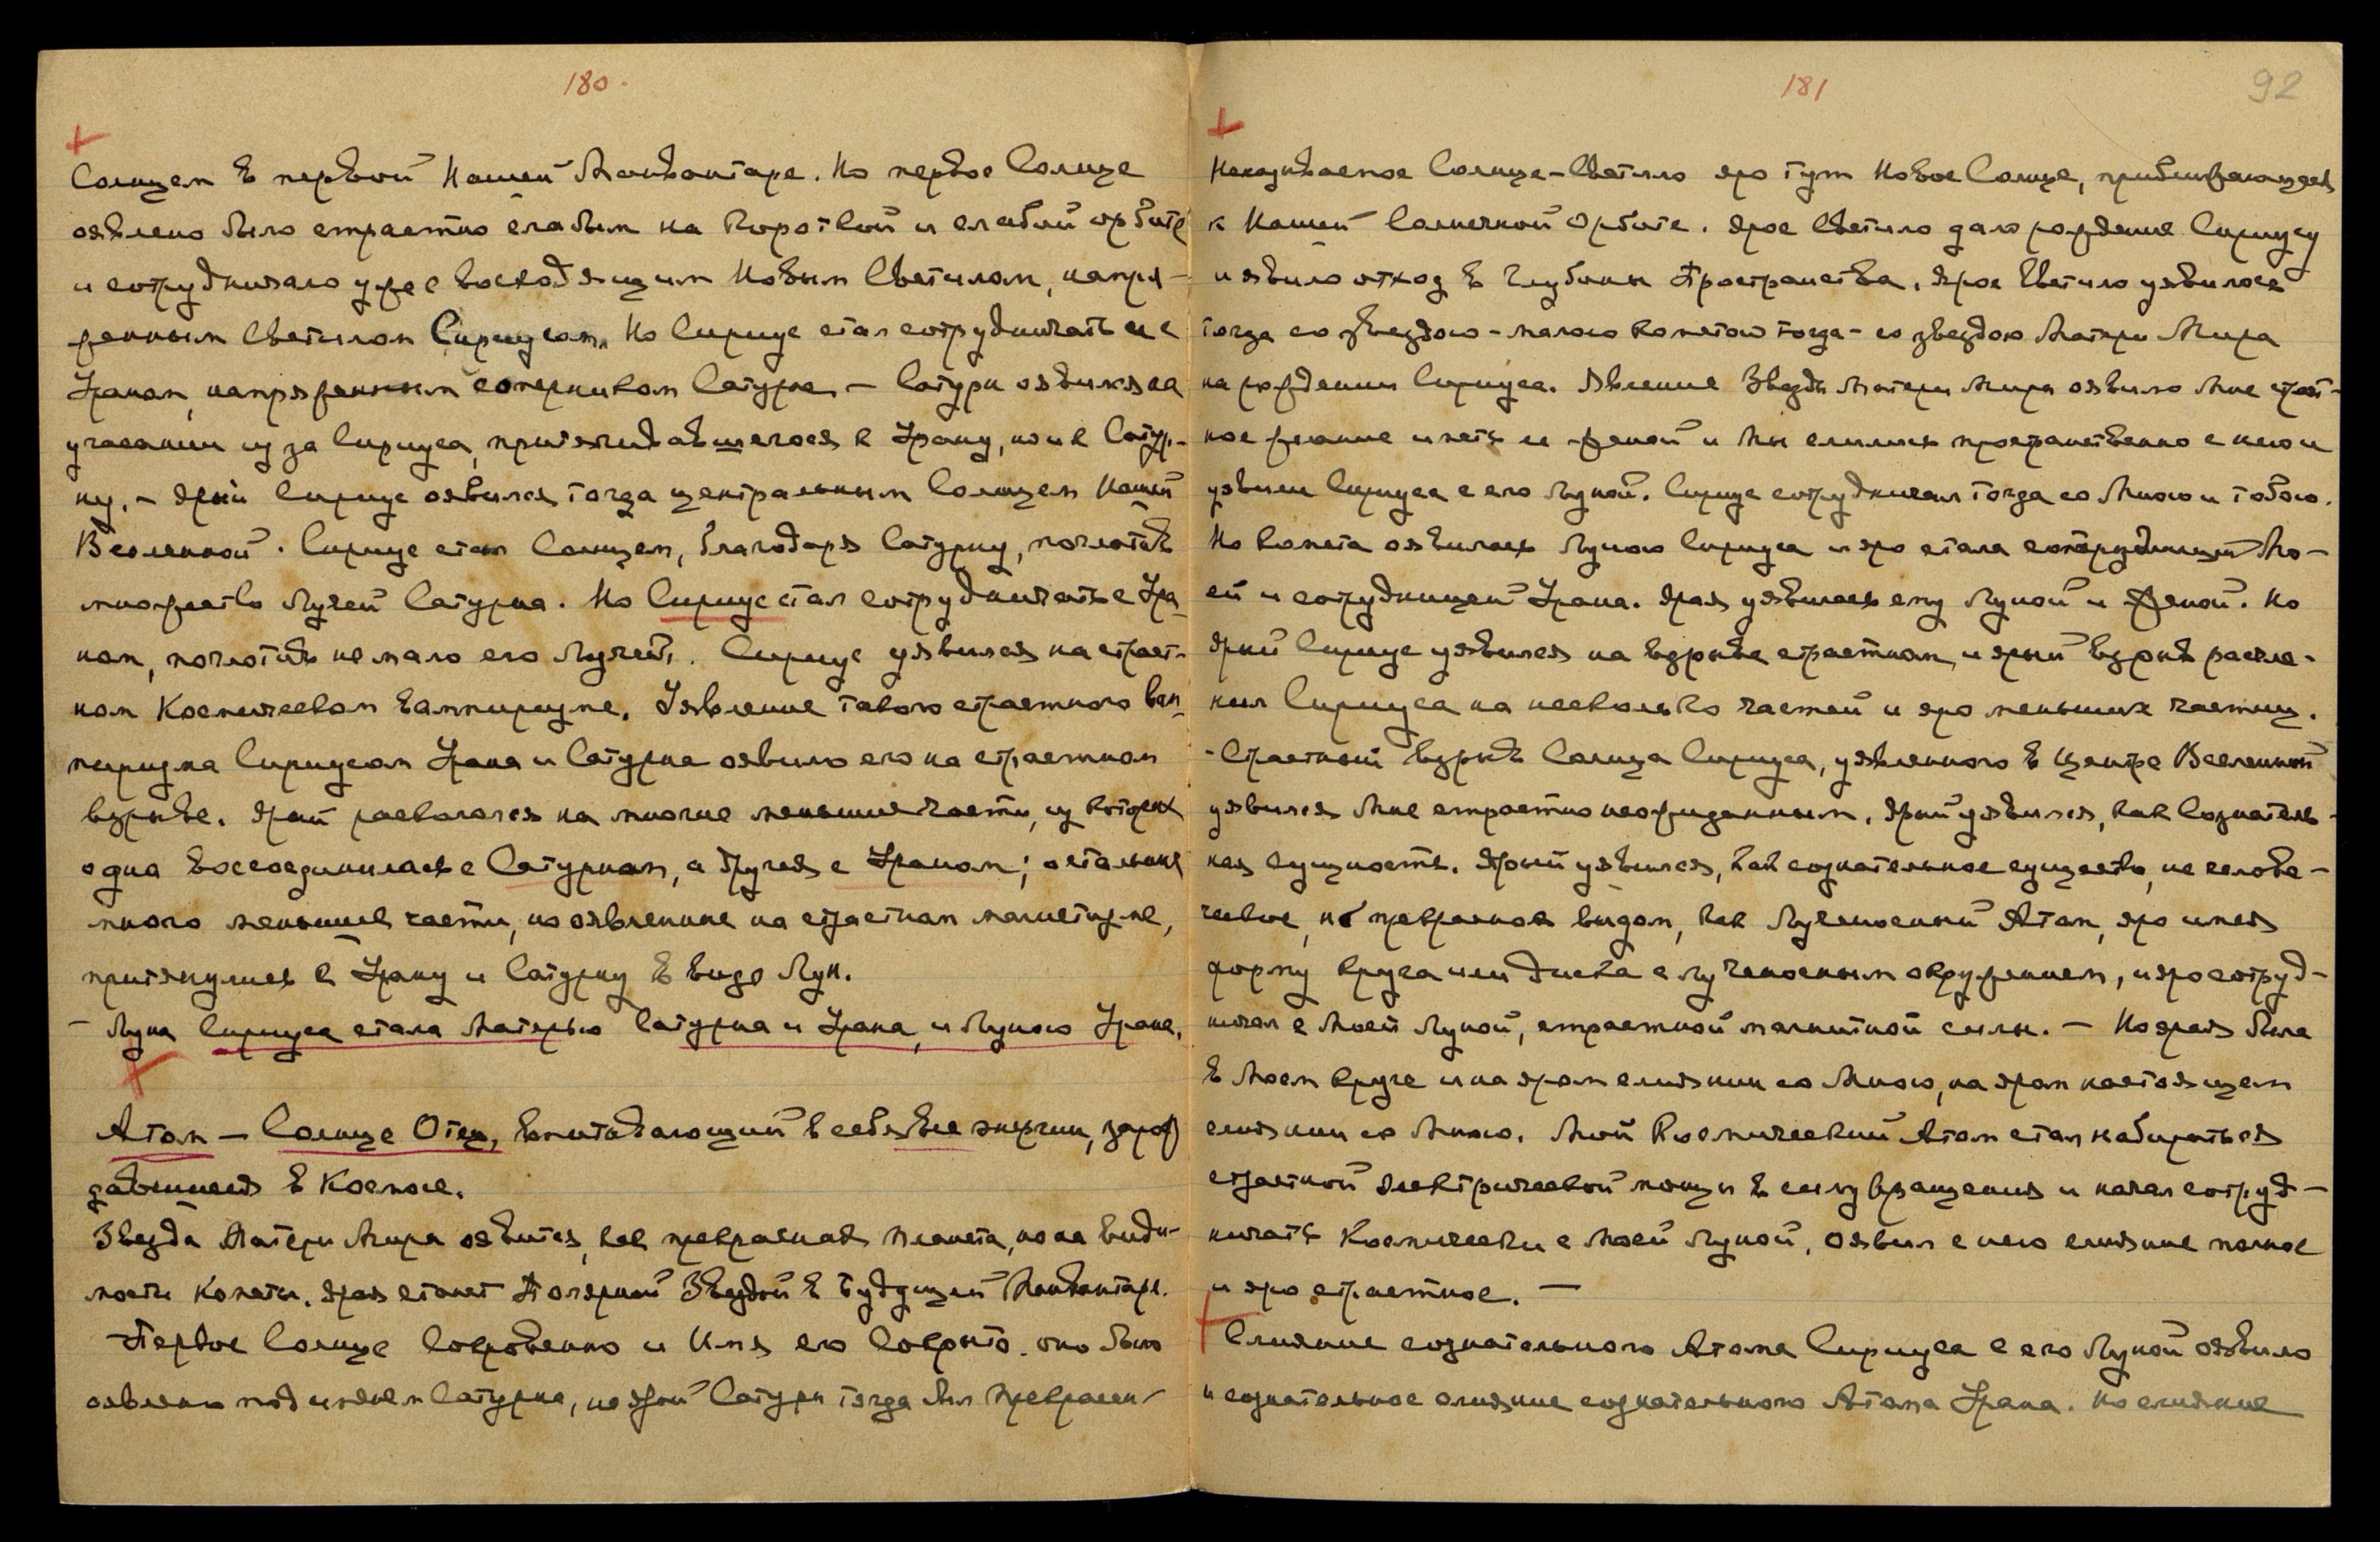 180.
Солнцем в первой Нашей Манвантаре. Но первое Солнце
оявлено было страстно слабым на короткой и слабой орбите
и сотрудничало уже с восходящим Новым Светилом, напря-
женным Светилом Сириусом. Но Сириус стал сотрудничать и с
Ураном, напряженным соперником Сатурна – Сатурн оявился на
угасании из за Сириуса, притягивавшегося к Урану, но и к Сатур-
ну, – Ярый Сириус оявился тогда центральным Солнцем Нашей
Вселенной. Сириус стал Солнцем, благодаря Сатурну, поглотив
множество Лучей Сатурна. Но Сириус стал сотрудничать с Ура-
ном, поглотив не мало его Лучей. Сириус уявился на страст-
ном Космическом вампиризме. Уявление такого страстного вам-
пиризма Сириусом Урана и Сатурна оявило его на страстном
взрыве. Ярый раскололся на многие меньшие части, из которых
одна воссоединилась с Сатурном, а другая с Ураном; остальные
много меньшие части, но оявленные на страстном магнетизме,
притянулись к Урану и Сатурну в виде Лун.
– Луна Сириуса стала Матерью Сатурна и Урана, и Луною Урана.
Атом – Солнце Отец, впитавающий в себя все энергии, зарож
давшиеся в Космосе.
Звезда Матери Мира оявится, как прекрасная планета, но на види-
мости кометы. Ярая станет Полярной Звездой в будущей Манвантаре.
– Первое Солнце Сокровенно и Имя его Сокрыто. оно было
оявлено под именем Сатурна, но ярый Сатурн тогда был прекрасен
181
92
Неназываемое Солнце-Светило яро тут Новое Солнце, приближающееся
к Нашей Солнечной Орбите. Ярое Светило дало рождение Сириусу
и явило отход в Глубины Пространства. Ярое Светило уявилось
тогда со звездою – малою кометою тогда – со звездою Матери Мира
на рождении Сириуса. Явление Звезды Матери Мира оявило Мне страст-
ное желание иметь ее женой и Мы слились пространственно с нею и
уявили Сириуса с его Луной. Сириус сотрудничал тогда со Мною и тобою.
Но комета оявилась Луною Сириуса и яро стала сотрудницей Мо-
ей и сотрудницей Урана. Ярая уявилась ему Луной и Женой. Но
ярый Сириус уявился на взрыве страстном, и ярый взрыв расчле-
нил Сириуса на несколько частей и яро меньших частиц.
– Страстный взрыв Солнца Сириуса, уявленного в Центре Вселенной
уявился Мне страстно неожиданным. Ярый уявился, как Сознатель-
ная сущность. Ярый уявился, как сознательное существо, не челове-
ческое, но прекрасное видом, как Лученосный Атом, яро имея
форму круга или диска с лученосным окружением, и яро сотруд-
ничал с Моей Луной, страстной магнитной силы. – Но ярая была
в Моем круге и на яром слиянии со Мною, на яром настоящем
слиянии со Мною. Мой Космический Атом стал набираться
страстной электрической мощи в силу вращения и начал сотруд-
ничать Космически с Моей Луной, оявил с нею слияние полное
и яро страстное. –
Слияние сознательного Атома Сириуса с его Луной оявило
и сознательное слияние сознательного Атома Урана. Но слияние